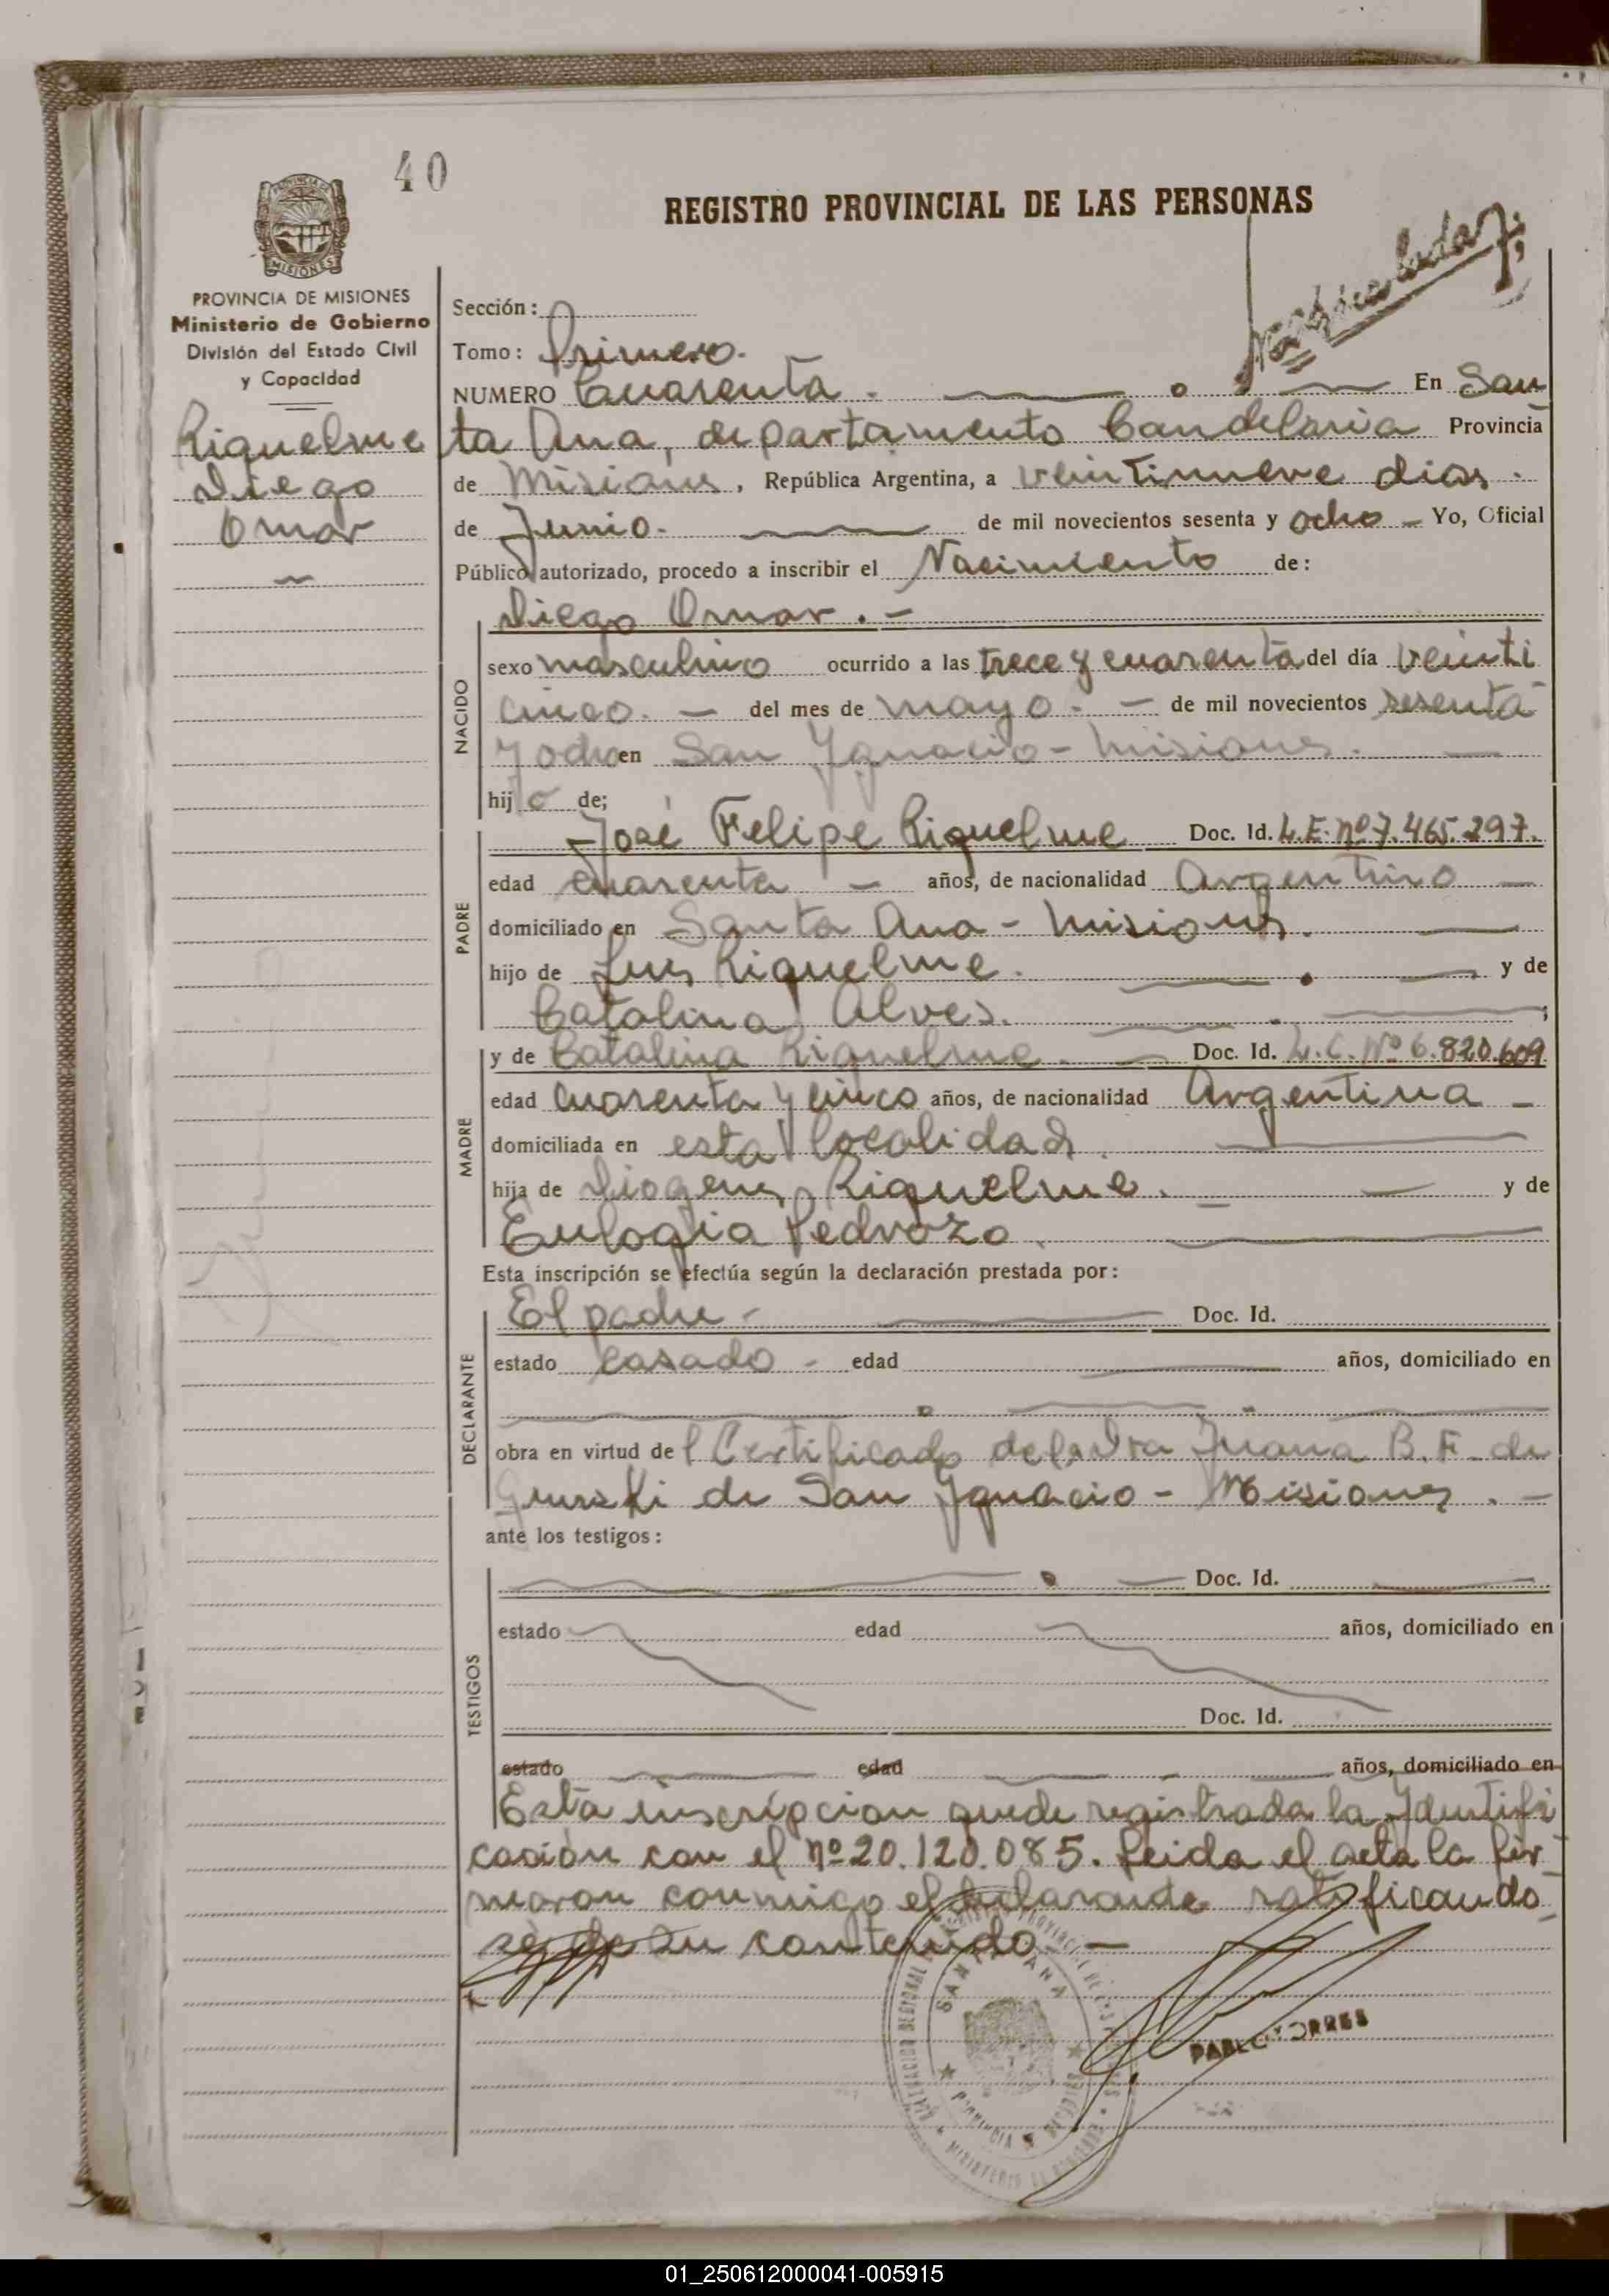 40
REGISTRO PROVINCIAL DE LAS PERSONAS
PROVINCIA DE MISIONES
Ministerio de Gobierno
División del Estado Civil
y Capacidad
Riquelme
Diego
Omar
Sección:
Tomo: Primero.
NUMERO Cuarenta. En San
ta Ana, departamento Candelaria Provincia
de Misiones, República Argentina, a veintinueve dias.
de Junio. de mil novecientos sesenta y ocho Yo, Oficial
Público autorizado, procedo a inscribir el Nacimiento de:
Diego Omar. -
NACIDO
sexo masculino ocurrido a las trece y cuarenta del día veinti
cinco. - del mes de mayo. - de mil novecientos sesenta
y ocho en San Ygnacio - Misiones.
hijo de;
PADRE
José Felipe Riquelme Doc. Id. L.E. nº 7.465.297.
edad cuarenta - años, de nacionalidad Argentino -
domiciliado en Santa Ana - Misiones.
hijo de Luis Riquelme. y de
Catalina Alves. ;
MADRE
y de Catalina Riquelme. Doc. Id. L.C. Nº 6.820.609
edad cuarenta y cinco años, de nacionalidad Argentina -
domiciliada en esta localidad.
hija de Diogenes Riquelme. y de
Eulogia Pedrozo.
Esta inscripción se efectúa según la declaración prestada por:
DECLARANTE
El padre - Doc. Id.
estado casado - edad años, domiciliado en
obra en virtud del Certificado de la Dra Juana B. F. de
de San Ygnacio - Misiones. -
ante los testigos:
TESTIGOS
Doc. Id.
estado edad años, domiciliado en
Doc. Id.
estado edad años, domiciliado en
Esta inscripcion quede registrada la Ydentifi
cación con el nº 20.120.085. Leida el acta la fir
maron conmigo el declarante ratificando
se de su contenido. -
SANTA ANA
PABLO TORRES
01_250612000041-005915